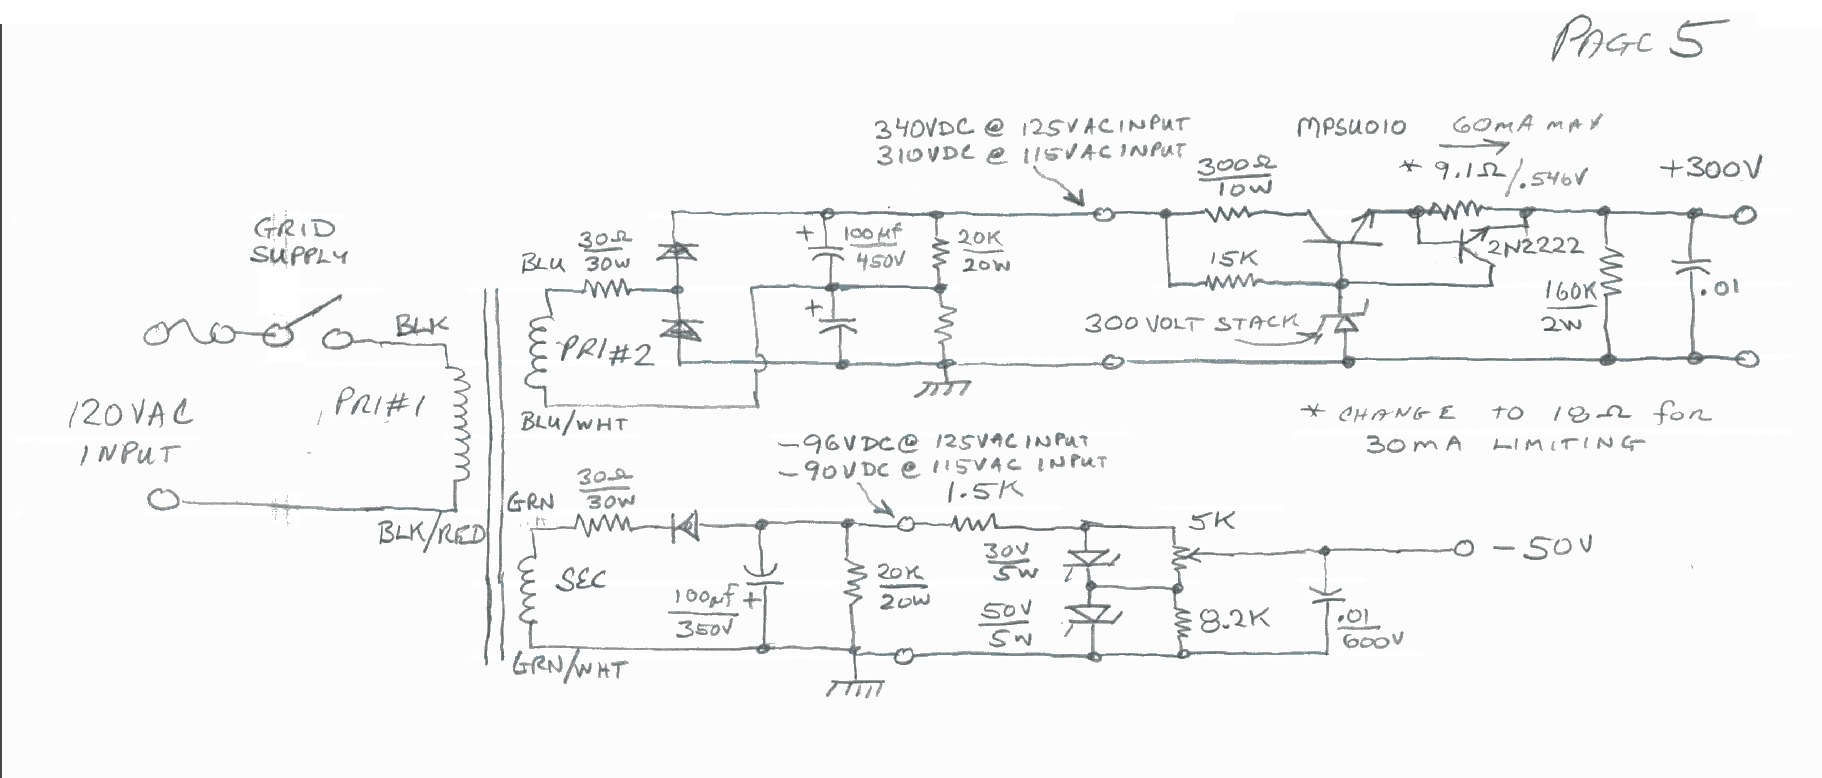 PAGE 5
340VDC @ 125VAC INPUT
310VDC @ 115VAC INPUT
MPSU010
60MA MAX
300Ω
10W
* 9.1Ω/.546V
+300V
GRID
SUPPLY
BLU
30Ω
30W
100µf
450V
+
20K
20W
15K
2N2222
160K
2W
.01
BLK
PRI#2
+
300 VOLT STACK
120VAC
INPUT
PRI#1
BLU/WHT
* CHANGE TO 18Ω for
30MA LIMITING
-96VDC @ 125VAC INPUT
-90VDC @ 115VAC INPUT
1.5K
GRN
30Ω
30W
BLK/RED
5K
-50V
SEC
100µf
350V
+
20K
20W
30V
5W
50V
5W
8.2K
.01
600V
GRN/WHT